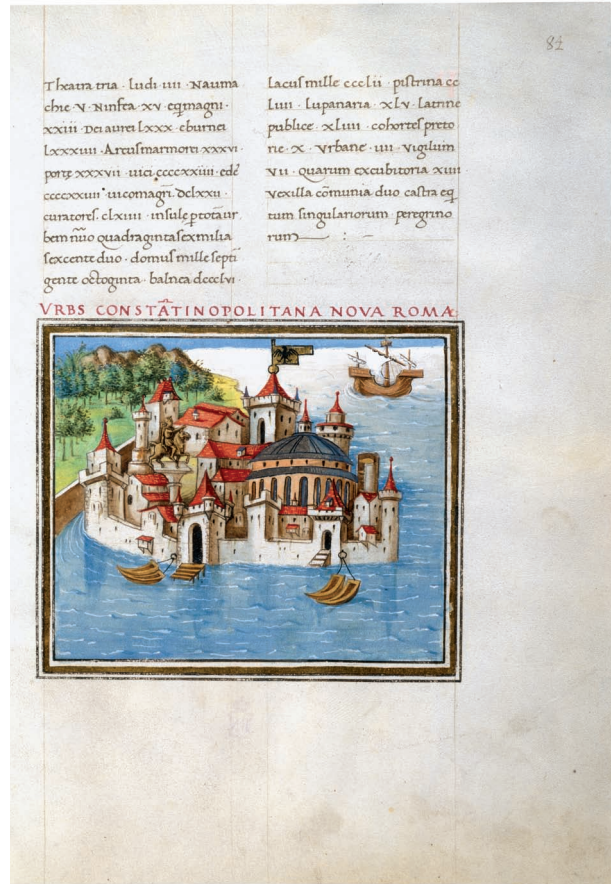 84
Theatra tria · ludi iiii · Nauma
chie · V · Ninfea · XV · eq̃magni ·
xxiii · Dei aurei lxxx · eburnei
lxxxiiii · Arcus marmorei xxxvi ·
porte xxxvii · uici ccccxxiiii · ede
ccccxxiii · uicomagr̃i · dclxxii ·
curatores · clxiiii · insule p tota ur
bem quadraginta sex milia
sexcente duo · domus mille septi
gente octoginta · balnea dccclvi ·
lacus mille ccclii · pistrina cc
liiii · lupanaria · xlv · latrine
publice · xliiii · cohortes preto
rie · X · Vrbane · iiii · Vigilum
VII · quarum excubitoria xiiii
Vexilla cõmunia duo castra eq
tum singulariorum peregrino
rum
VRBS CONSTÃTINOPOLITANA NOVA ROMA